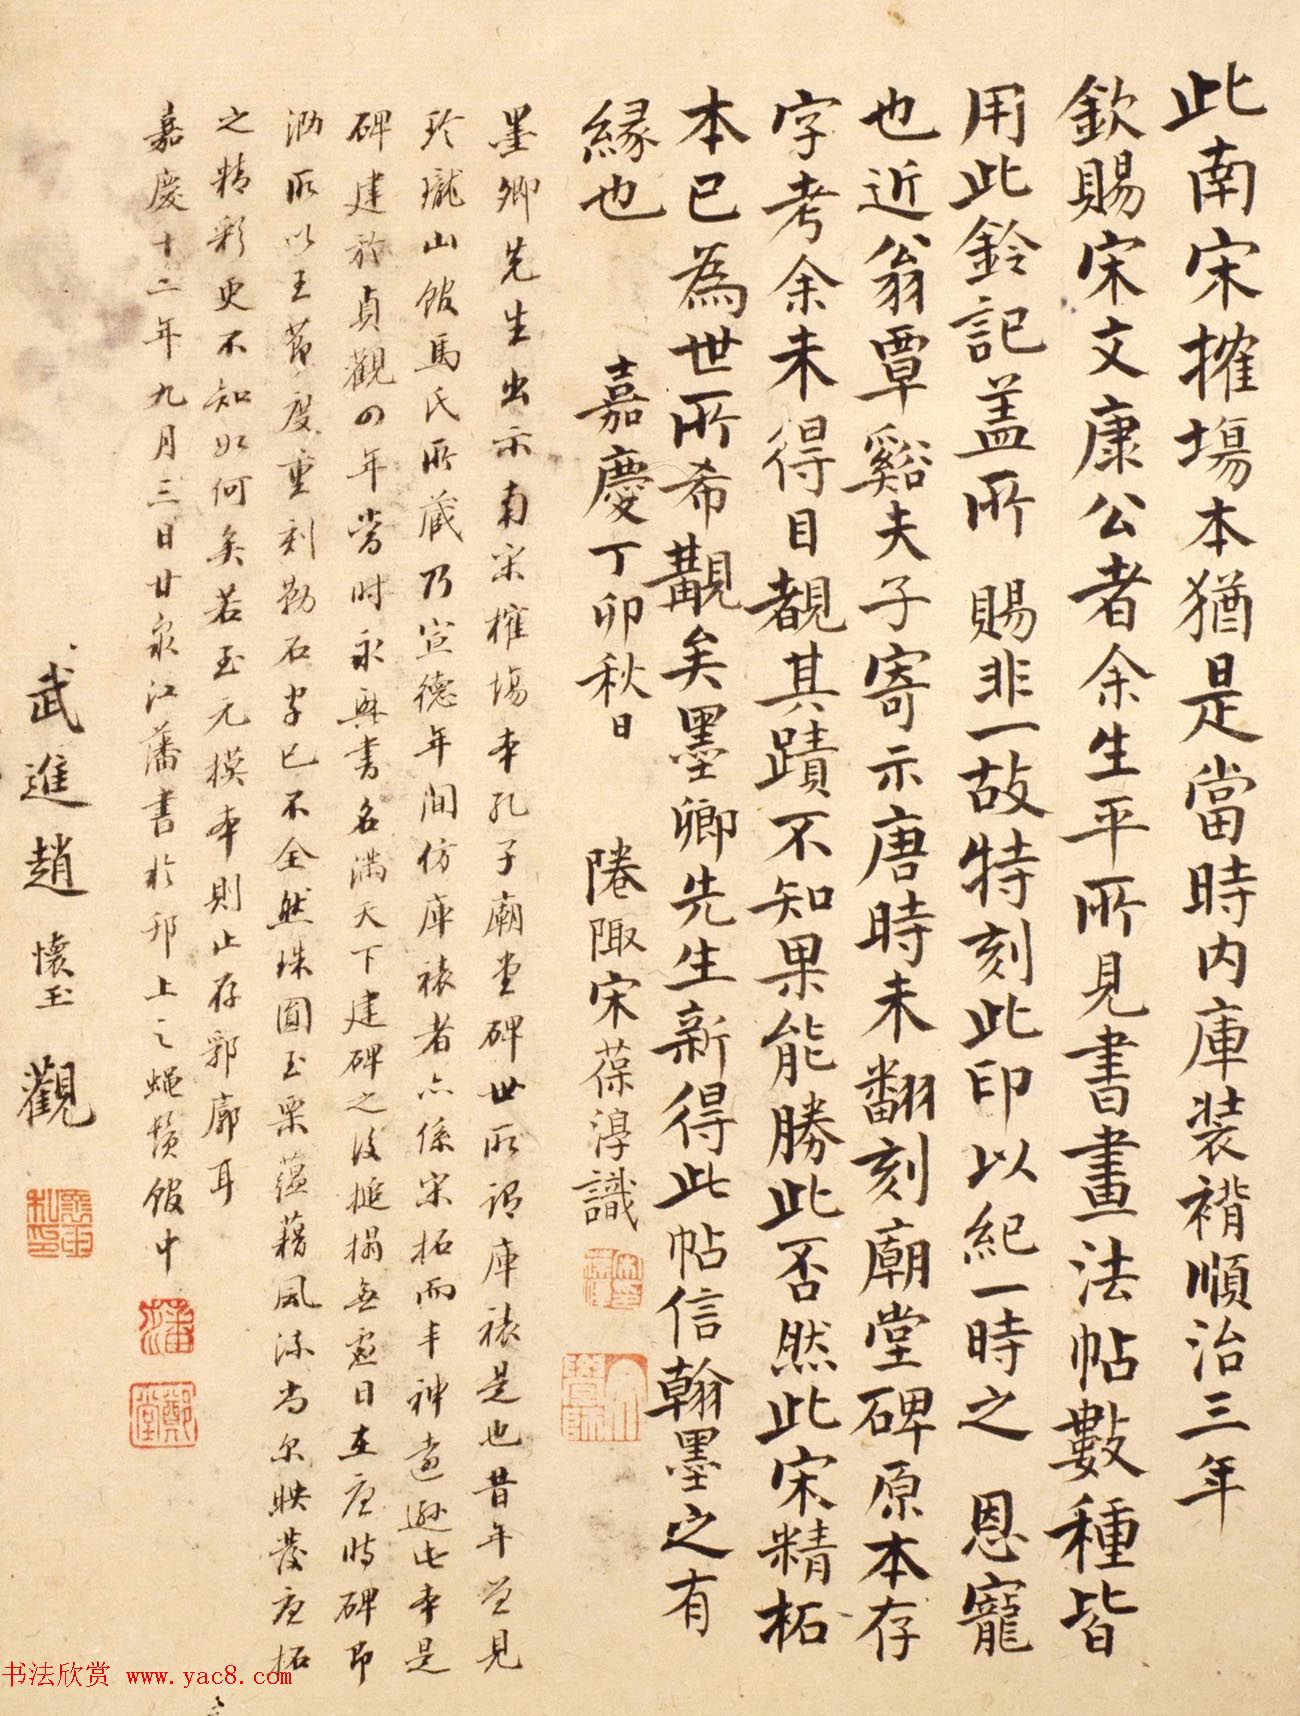 此南宋搉塲本猶是當時内庫装褙順治三年
欽賜宋文康公者余生平所見書畫法帖數種皆
用此鈐記盖所 賜非一故特刻此印以紀一時之 恩寵
也近翁覃谿夫子寄示唐時未翻刻廟堂碑原本存
字考余未得目覩其蹟不知果能勝此否然此宋精拓
本已為世所希覯矣墨卿先生新得此帖信翰墨之有
緣也 嘉慶丁卯秋日 陭陬宋葆淳識
墨卿先生出示南宋榷塲本孔子廟堂碑世所謂庫裱是也昔年曾見
玲瓏山館馬氏所藏乃宣德年間仿庫裱者亦係宋拓而丰神遠遜此本是
碑建於貞觀四年當時永興書名滿天下建碑之後搥搨無虚日在唐時碑即
泐所以王節度重刻勒石字已不全然珠圓玉栗蘊藉風流尚尔映蔡唐拓
之精彩更不知如何矣若至元摸本則止存郭廓耳
嘉慶十二年九月三日甘泉江藩書於邗上之蠅鬚館中
武進趙懷玉觀
书法欣赏 www.yac8.com